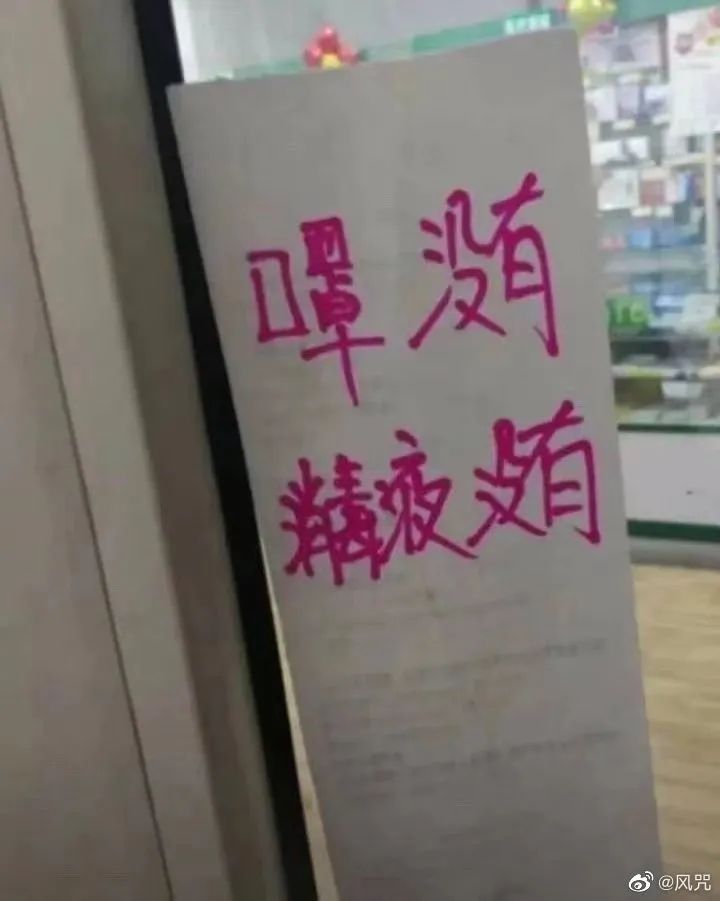 口罩没有
消毒液没有
@风咒